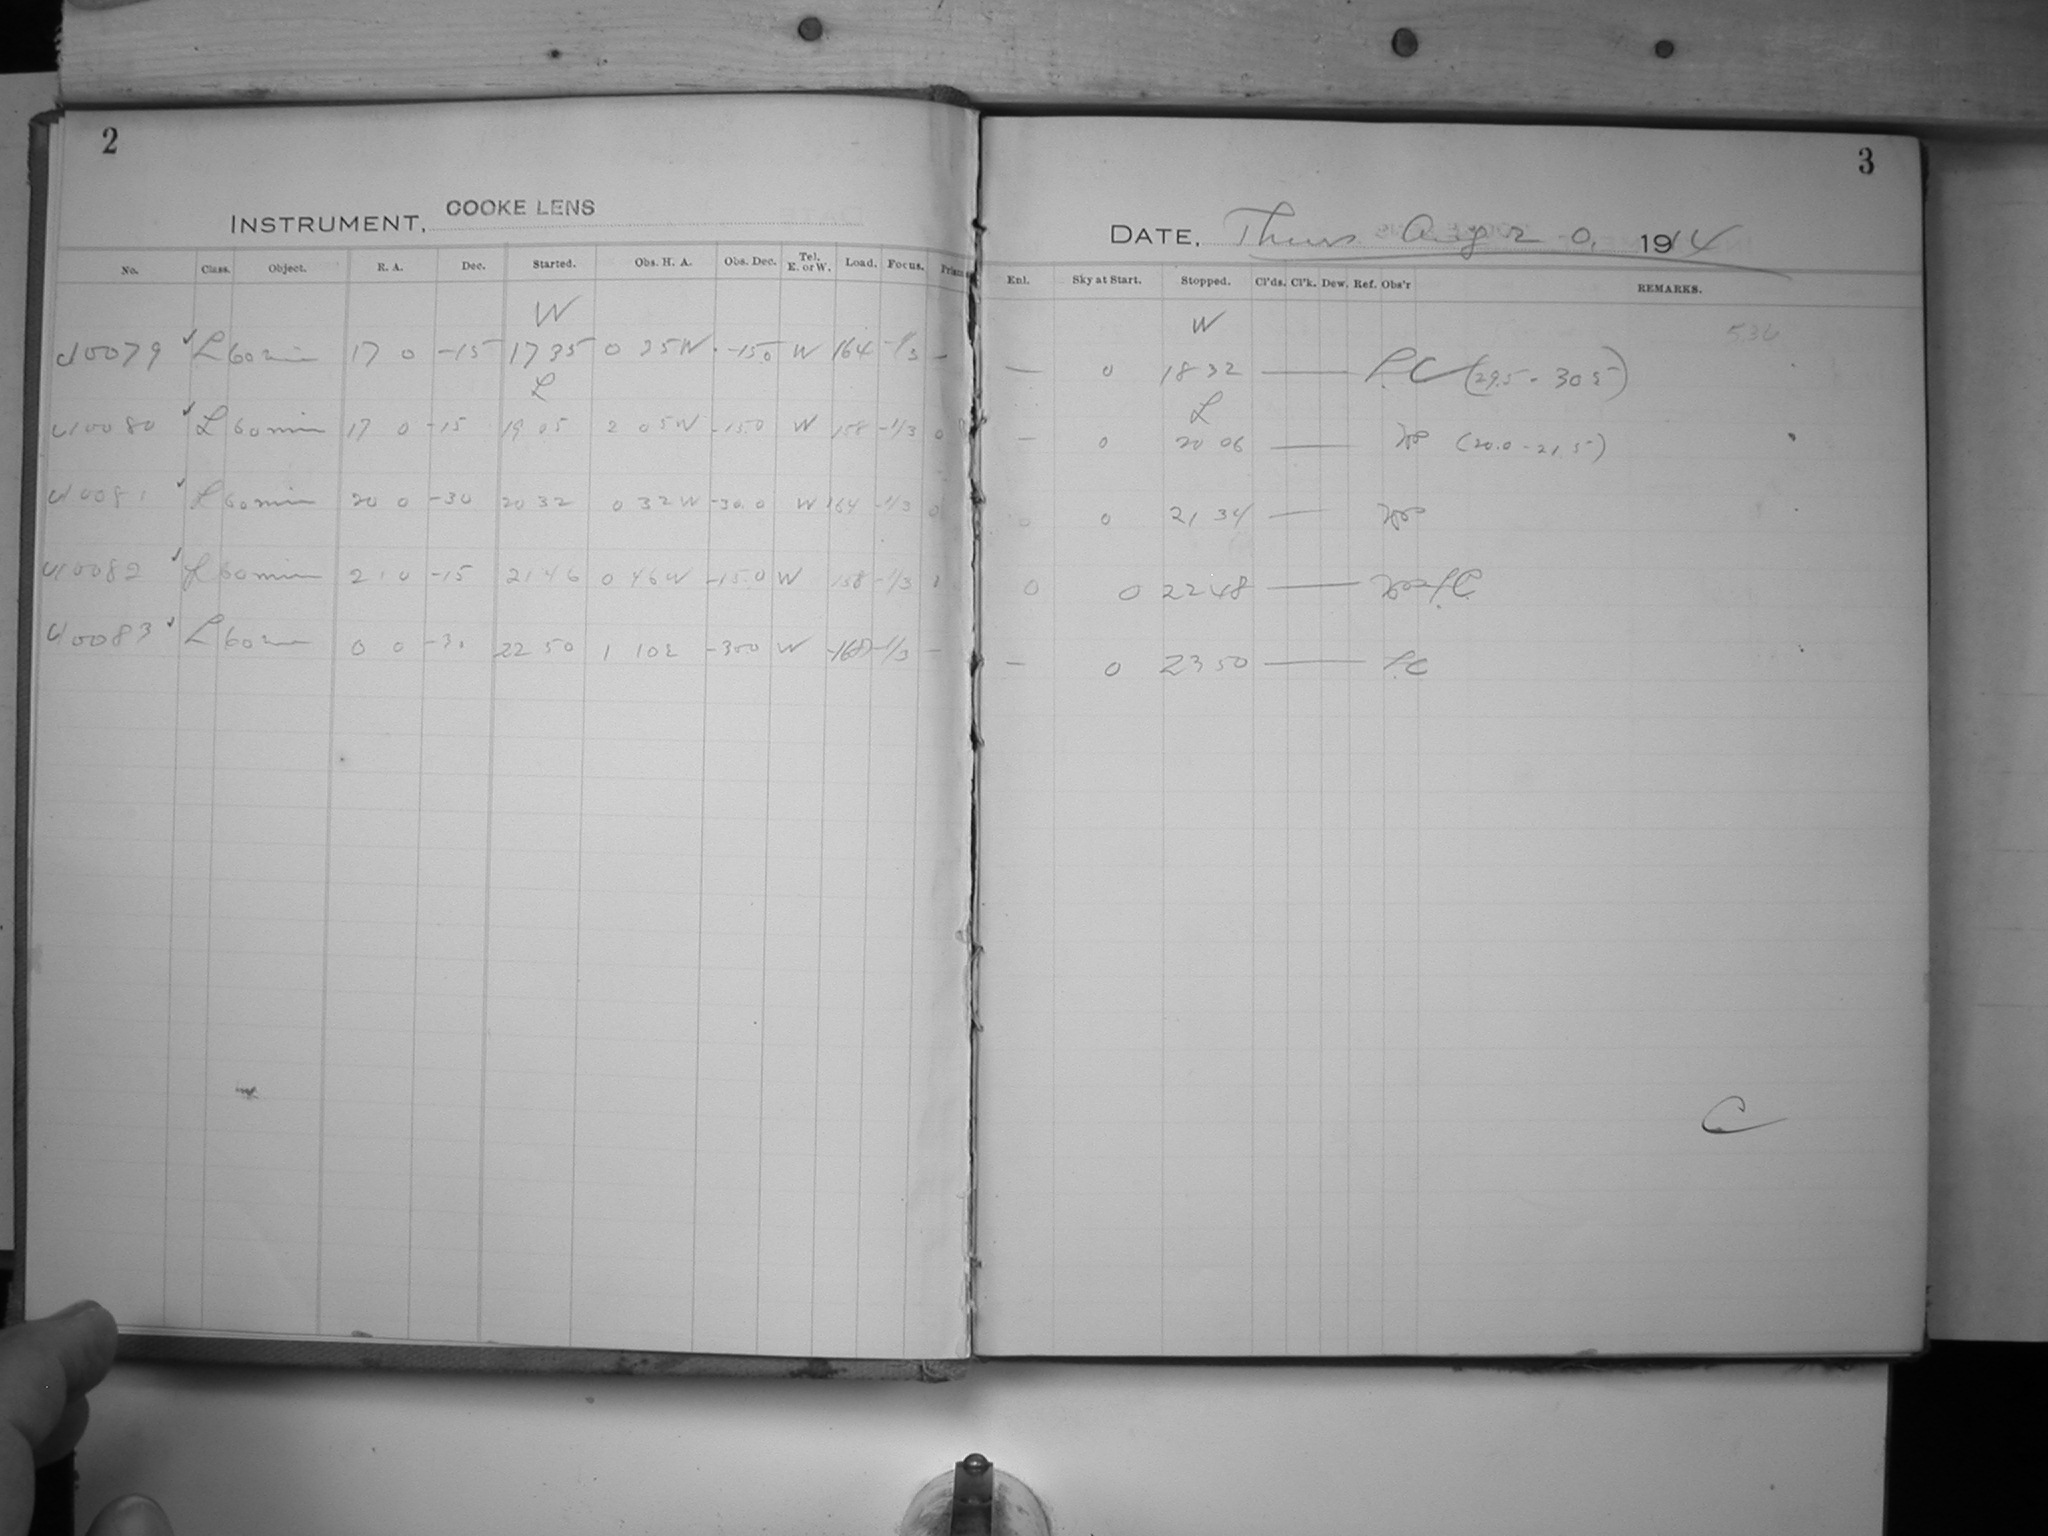 2
INSTRUMENT, COOKE LENS
No. Class. Object. R. A. Dec. Started. Obs. H. A. Obs. Dec. Tel. E. or W. Load. Focus. Prism
W
10079 L 60 min 17 0 -15 17 35 0 35W -15.0 W 164 -1/3 —
L
10080 L 60 min 17 0 -15 19 05 2 05W -15.0 W 158 -1/3 0
10081 L 60 min 20 0 -30 20 32 0 32W -30.0 W 164 -1/3 0
10082 L 60 min 21 0 -15 21 46 0 46W -15.0 W 158 -1/3
10083 L 60 min 0 0 -30 22 50 1 10E -300 W -1/3 —
3
DATE, Thurs Aug 20, 1914
Enl. Sky at Start. Stopped. Cl'ds. Cl'k. Dew. Ref. Obs'r REMARKS.
W 536
— 0 18 32 — L.C (29.5 - 30.5)
L
— 0 20 06 — (20.0 - 21.5)
0 0 21 34 —
0 0 22 48 — L.C.
— 0 23 50 — L.C
C